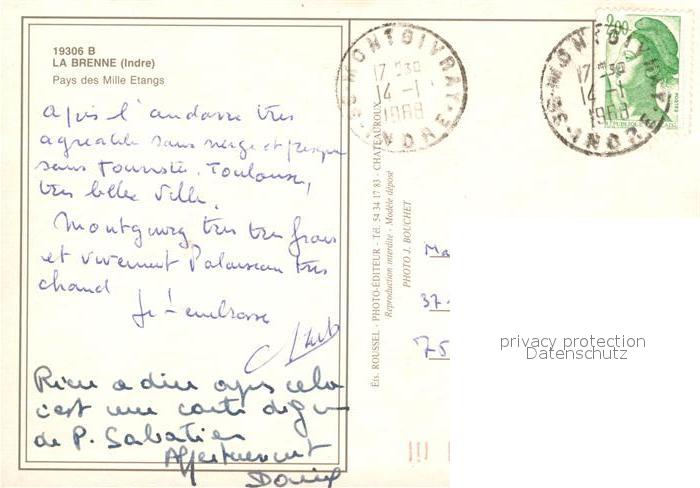 19306 B
LA BRENNE (Indre)
Pays des Mille Etangs
après l'andorre très
agréable sans neige et presque
sans touriste. Toulouse,
très belle ville.
Montgivray très très frais
et vivement Palaiseau très
chaud
Je t'embrasse
Rien a dire après cela
c'est une carte dig
de P. Sabatier
Affectueusement
Ets. ROUSSEL - PHOTO-ÉDITEUR - Tél. 54 34 17 83 - CHATEAUROUX
Reproduction interdite - Modèle déposé
PHOTO J. BOUCHET
36-MONTGIVRAY
17 H 30
14 -1
1988
INDRE
36-MONTGIVRAY
17 H 30
14 -1
1988
INDRE
2,00
POSTES
Ma
37
75
privacy protection
Datenschutz